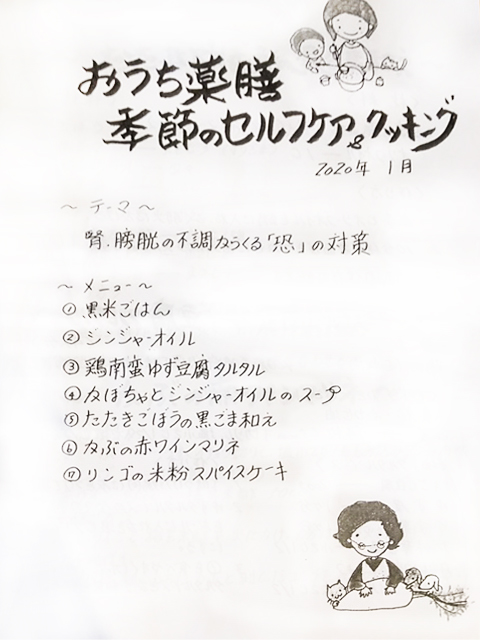 おうち薬膳
季節のセルフケア&クッキング
2020年 1月
〜 テーマ 〜
腎・膀胱の不調からくる「恐」の対策
〜 メニュー 〜
① 黒米ごはん
② ジンジャーオイル
③ 鶏南蛮ゆず豆腐タルタル
④ かぼちゃとジンジャーオイルの スープ
⑤ たたきごぼうの黒ごま和え
⑥ かぶの赤ワインマリネ
⑦ リンゴの米粉スパイスケーキ